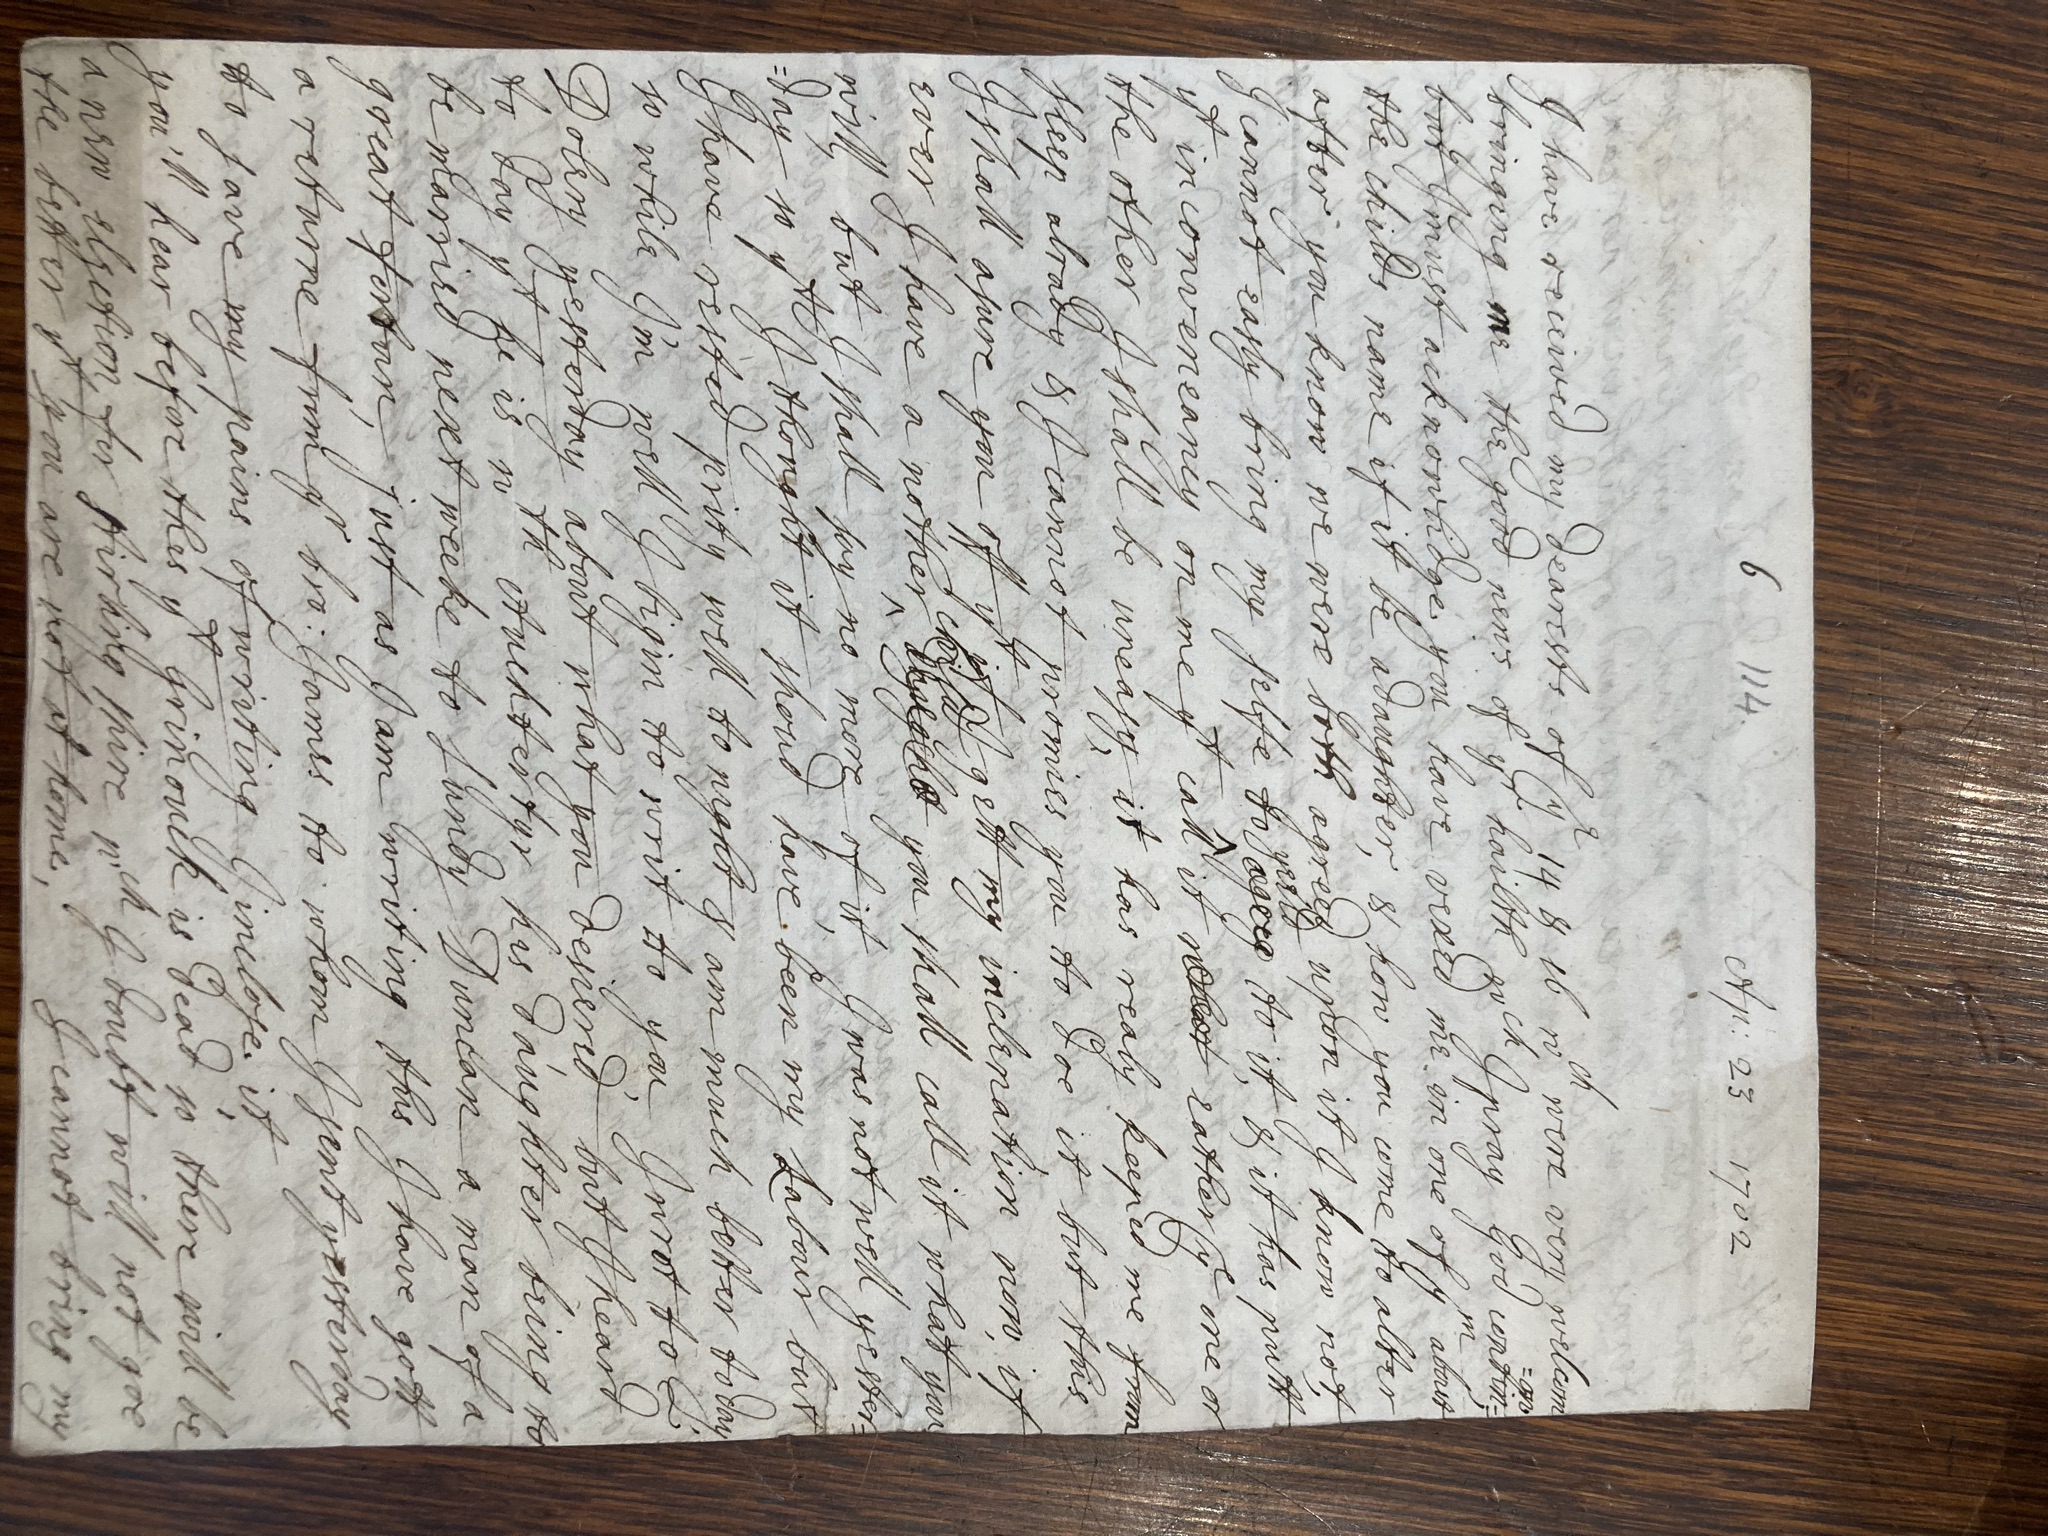 6 114. Ap: 23 1702
I have received my dearests of ye 14 & 16 wch were very welcom
bringing me the good news of yr hailth wch I pray God contin=
=on
but I must acknowlidge you have vexed me in one of ym about
the childs name if it be a daughter, & how you come to alter
after you know we were both agreed upon it I know not,
I cannot easly bring my selfe to yeeld agree to it, & it has putt
yt inconveneancy on me yt call it what eather ye one or
the other I shall be uneasy, it has realy keeped me from
sleep alrady & I cannot promies you to doe it, but this
I shall asure you off yt if I gett my inclenation now, if
ever I have a nother child you shall call it what you
will, but I shall say no more of it, I was not well yester=
=day so yt I thought it shoud have been my Labour but
I have rested prity well to night & am much better to day,
so while I'm well I bigin to writ to you, I wrot to
Dolery yesterday about what you desiered, but I heard
to day yt he is wth Auchtertyr his daughter being to
be married next weeke to Lundy Duncan a man of a
great fortun, just as I am writing this I have gott
a returne from yr bro: James to whom I sent yesterday
to save my pains of writing I inclose it,
you'll hear before this yt Grinouck is dead so there will be
a new election for stirling shire wch I doubt will not goe
the better yt you are not at home, I cannot bring my